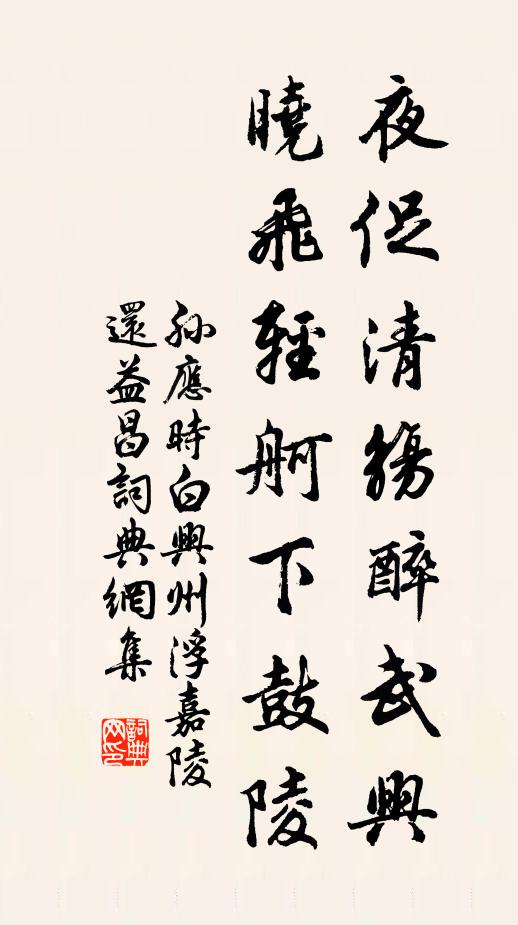 夜促清觴醉武興
曉飛輕舸下鼓陵
孫應時白興州浮嘉陵
還益昌詞典網集
詞典
网印